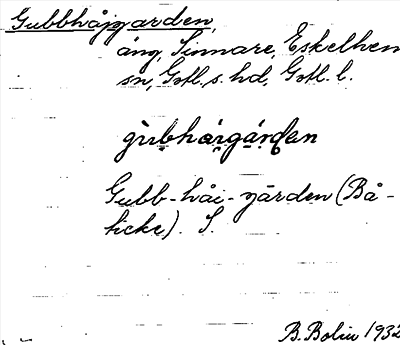 Gubbhåjgarden,
äng, Sinnare, Eskelhem
sn, Gotl. s. hd, Gotl. l.
gùbhái̯gá̱rden
Gubb-håi-gården (Bå-
ticke). S.
B. Bolin 1932